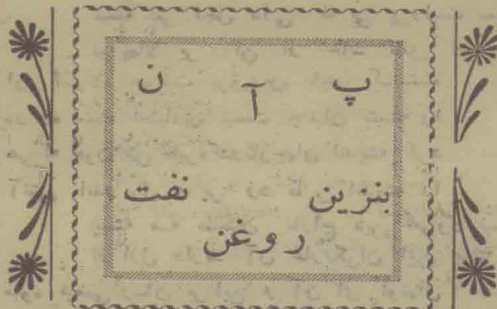 پ آ ن
بنزین نفت
روغن